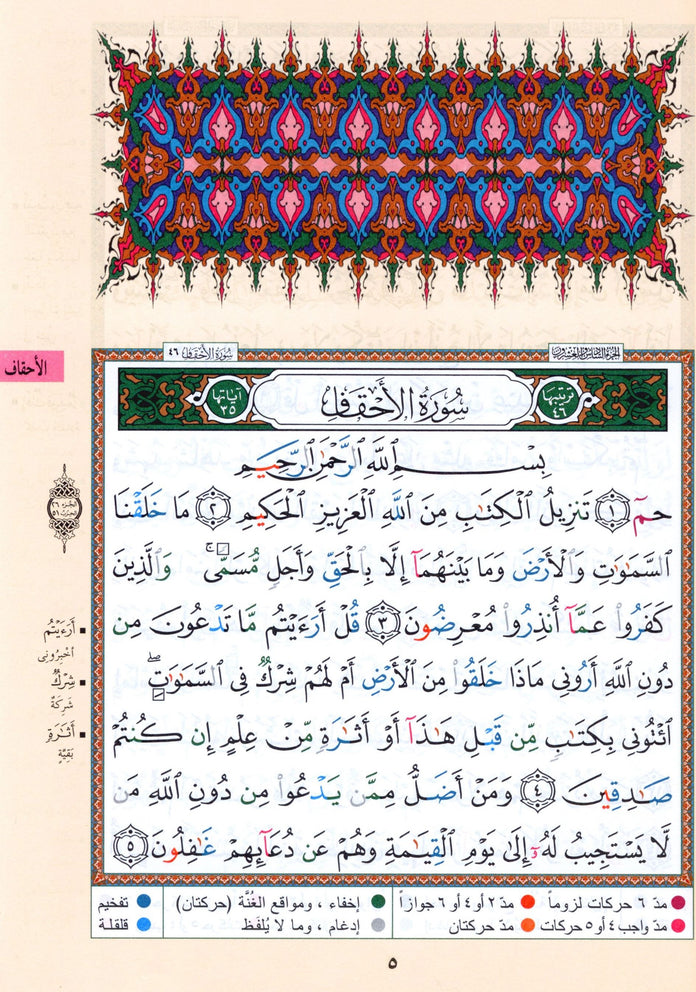 الجزء السادس والعشرون
سورة الأحقاف ٤٦
الأحقاف
ترتيبها ٤٦
سُورَةُ الأَحْقَافِ
آياتها ٣٥
بِسْمِ ٱللَّهِ ٱلرَّحْمَٰنِ ٱلرَّحِيمِ
حمٓ ۝١ تَنزِيلُ ٱلْكِتَٰبِ مِنَ ٱللَّهِ ٱلْعَزِيزِ ٱلْحَكِيمِ ۝٢ مَا خَلَقْنَا
ٱلسَّمَٰوَٰتِ وَٱلْأَرْضَ وَمَا بَيْنَهُمَآ إِلَّا بِٱلْحَقِّ وَأَجَلٍ مُّسَمًّى ۚ وَٱلَّذِينَ
كَفَرُوا۟ عَمَّآ أُنذِرُوا۟ مُعْرِضُونَ ۝٣ قُلْ أَرَءَيْتُم مَّا تَدْعُونَ مِن
دُونِ ٱللَّهِ أَرُونِى مَاذَا خَلَقُوا۟ مِنَ ٱلْأَرْضِ أَمْ لَهُمْ شِرْكٌ فِى ٱلسَّمَٰوَٰتِ ۖ
ٱئْتُونِى بِكِتَٰبٍ مِّن قَبْلِ هَٰذَآ أَوْ أَثَٰرَةٍ مِّنْ عِلْمٍ إِن كُنتُمْ
صَٰدِقِينَ ۝٤ وَمَنْ أَضَلُّ مِمَّن يَدْعُوا۟ مِن دُونِ ٱللَّهِ مَن
لَّا يَسْتَجِيبُ لَهُۥٓ إِلَىٰ يَوْمِ ٱلْقِيَٰمَةِ وَهُمْ عَن دُعَآئِهِمْ غَٰفِلُونَ ۝٥
الجزء ٢٦
الحزب ٥١
▪ أَرَءَيْتُم
أخبِرُونى
▪ شِرْكٌ
شَرِكَةٌ
▪ أَثَٰرَةٍ
بَقِيَّةٍ
مدّ ٦ حركات لزوماً ● مدّ ٢ أو ٤ أو ٦ جوازاً ● إخفاء ، ومواقع الغُنَّة (حركتان) ● تفخيم
مدّ واجب ٤ أو ٥ حركات ● مدّ حركتان ● إدغام ، وما لا يُلفَظ ● قلقلة
٥